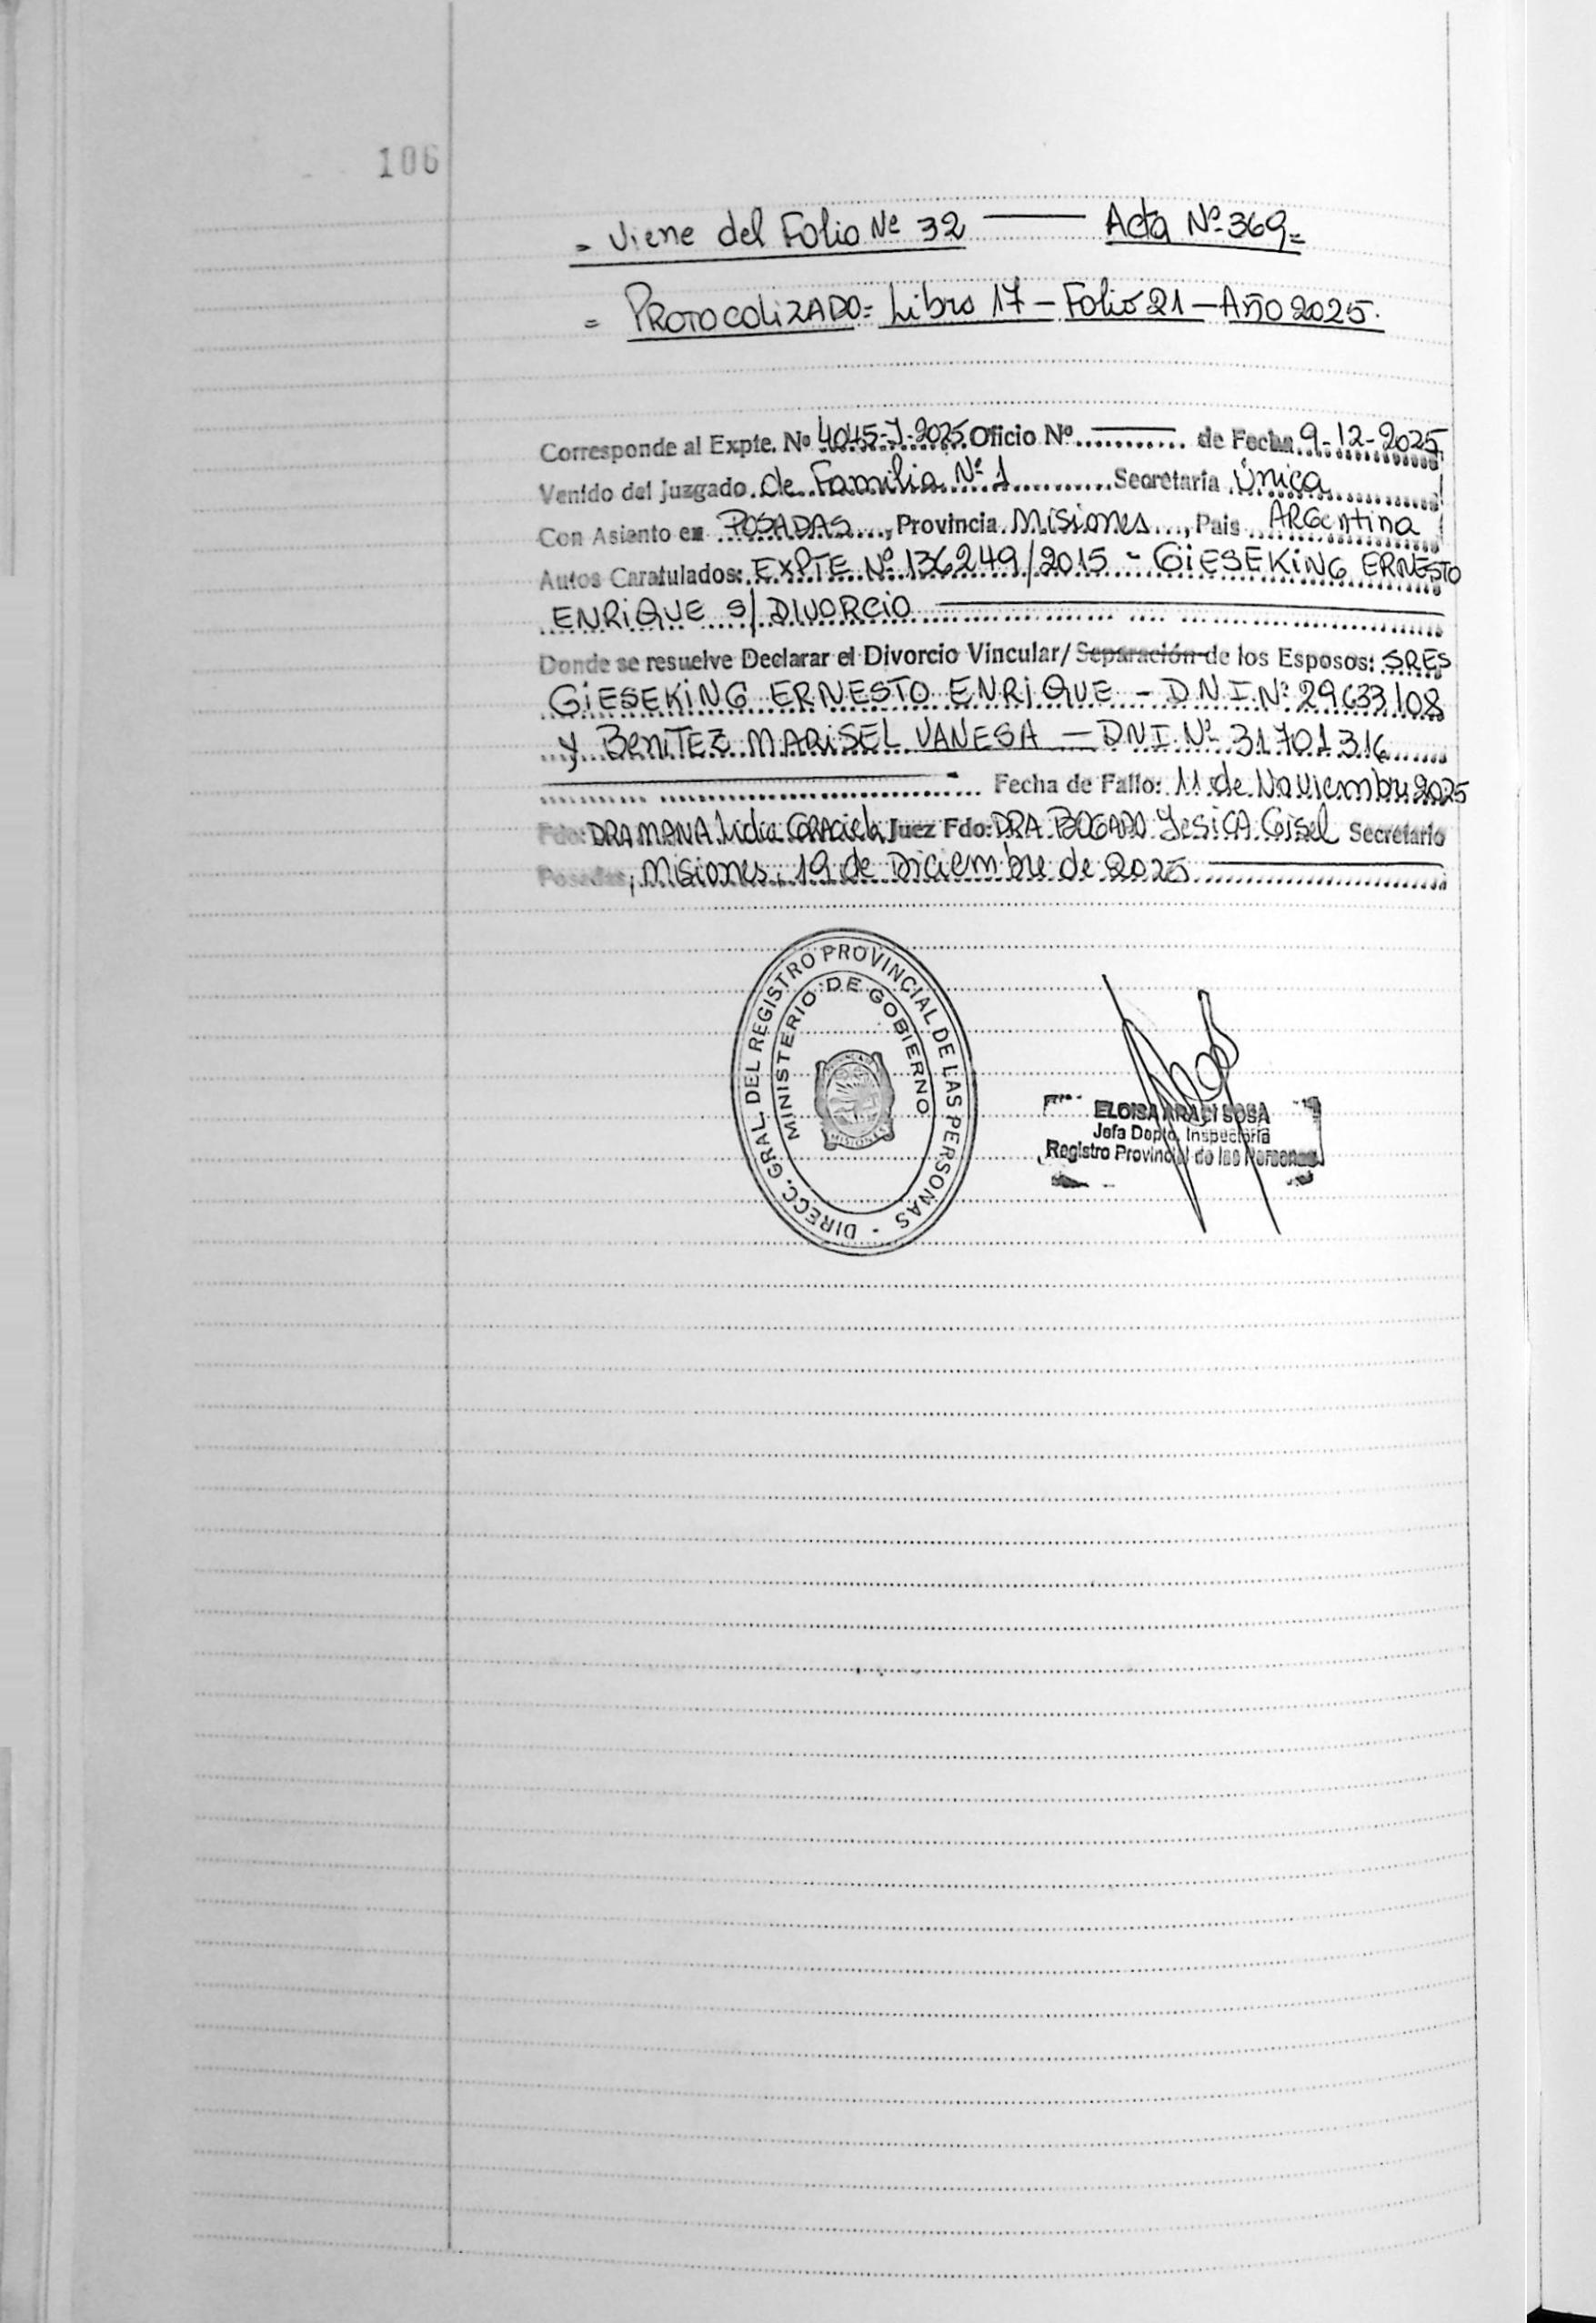 106
= Viene del Folio Nº 32 —— Acta Nº 369=
= PROTOCOLIZADO= Libro 17 – Folio 21 – AÑO 2025.
Corresponde al Expte. Nº 4045-J-2025 Oficio Nº ——— de Fecha 9-12-2025
Venido del Juzgado de Familia Nº 1 Secretaría Única
Con Asiento en POSADAS, Provincia Misiones, Pais ARGentina
Autos Caratulados: EXPTE Nº 136249/2015 - GiESEKiNG ERNESTO
ENRiQUE s/ DIVORCIO ———
Donde se resuelve Declarar el Divorcio Vincular/ Separación de los Esposos: SRES
GiESEKiNG ERNESTO ENRiQUE – D.N.I. Nº 29633108
y BeniTEZ MARiSEL VANESA – DNI. Nº 31701316
——— Fecha de Fallo: 11 de Noviembre 2025
Fdo: DRA Lidia GRAciela Juez Fdo: DRA. BOGADO YesiCA Gisel Secretario
Posadas, Misiones, 19 de Diciembre de 2025 ———
DIRECC. GRAL. DEL REGISTRO PROVINCIAL DE LAS PERSONAS -
MINISTERIO DE GOBIERNO
MISIONES
ELOISA ARACI SOSA
Jefa Depto. Inspectoría
Registro Provincial de las Personas